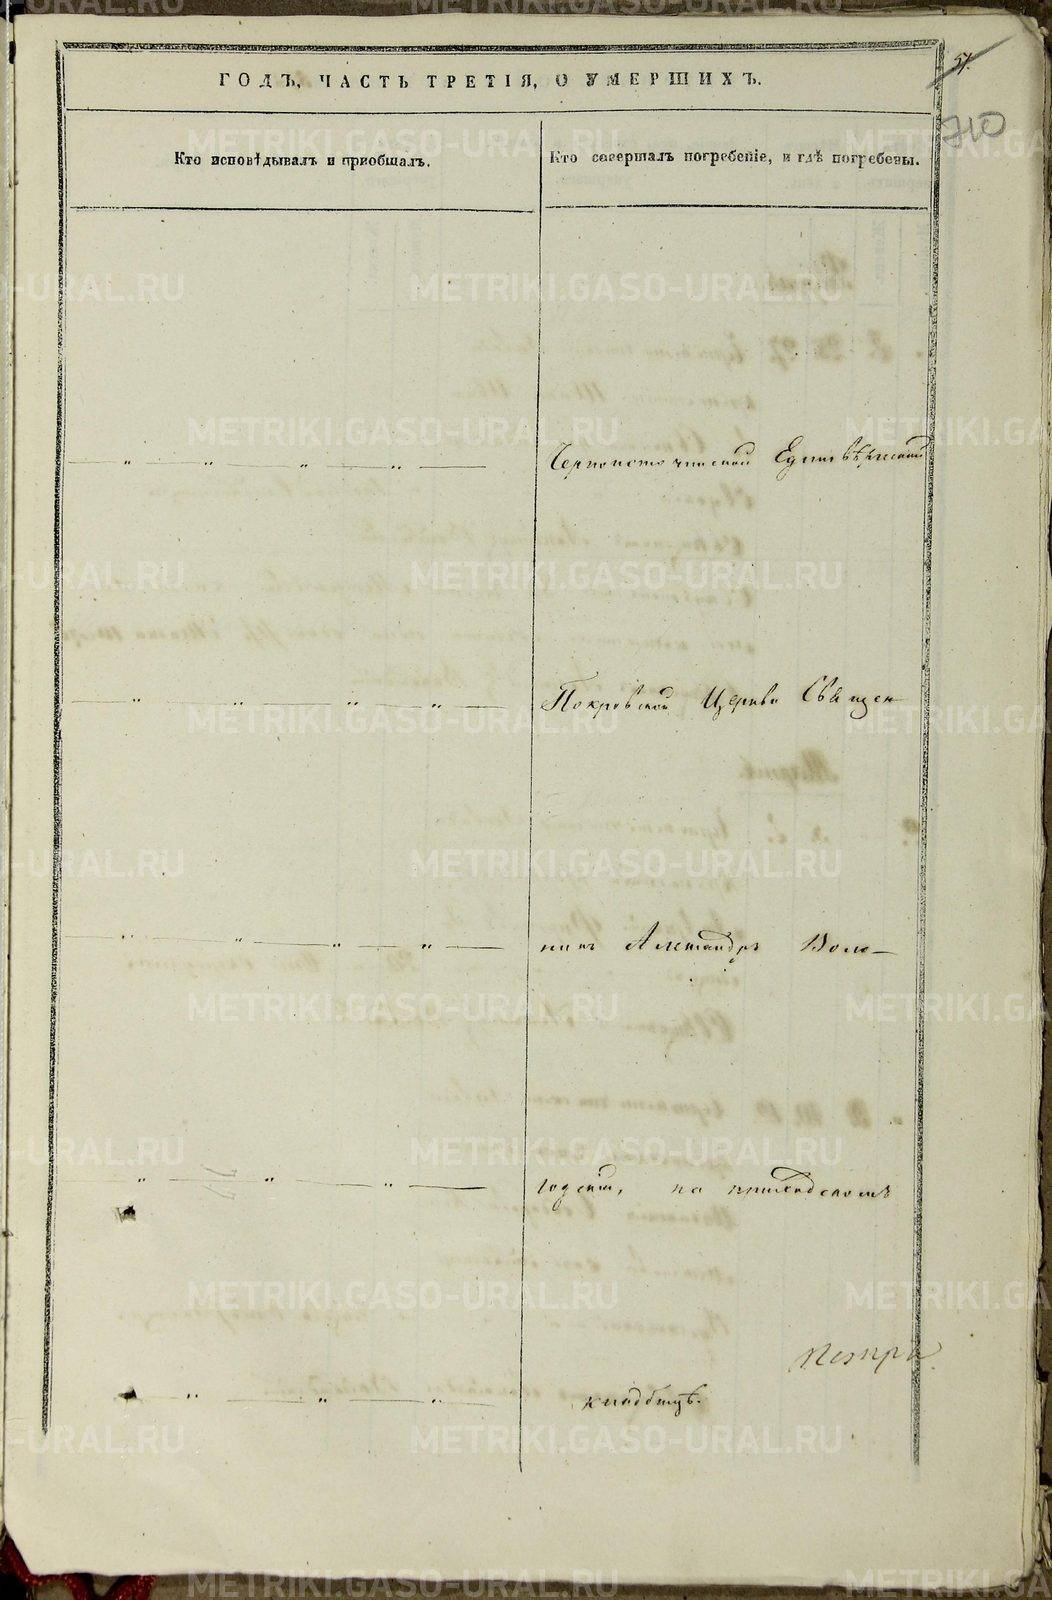 ГОДЪ, ЧАСТЬ ТРЕТІЯ, О УМЕРШИХЪ.
51.
710
Кто исповѣдывалъ и приобщалъ.
Кто совершалъ погребеніе, и гдѣ погребены.
Черноисточинской Единовѣрческой
Покровской Церкви Священ-
никъ Александръ Воло-
годскій, на приходскомъ
кладбищѣ.
METRIKI.GASO-URAL.RU